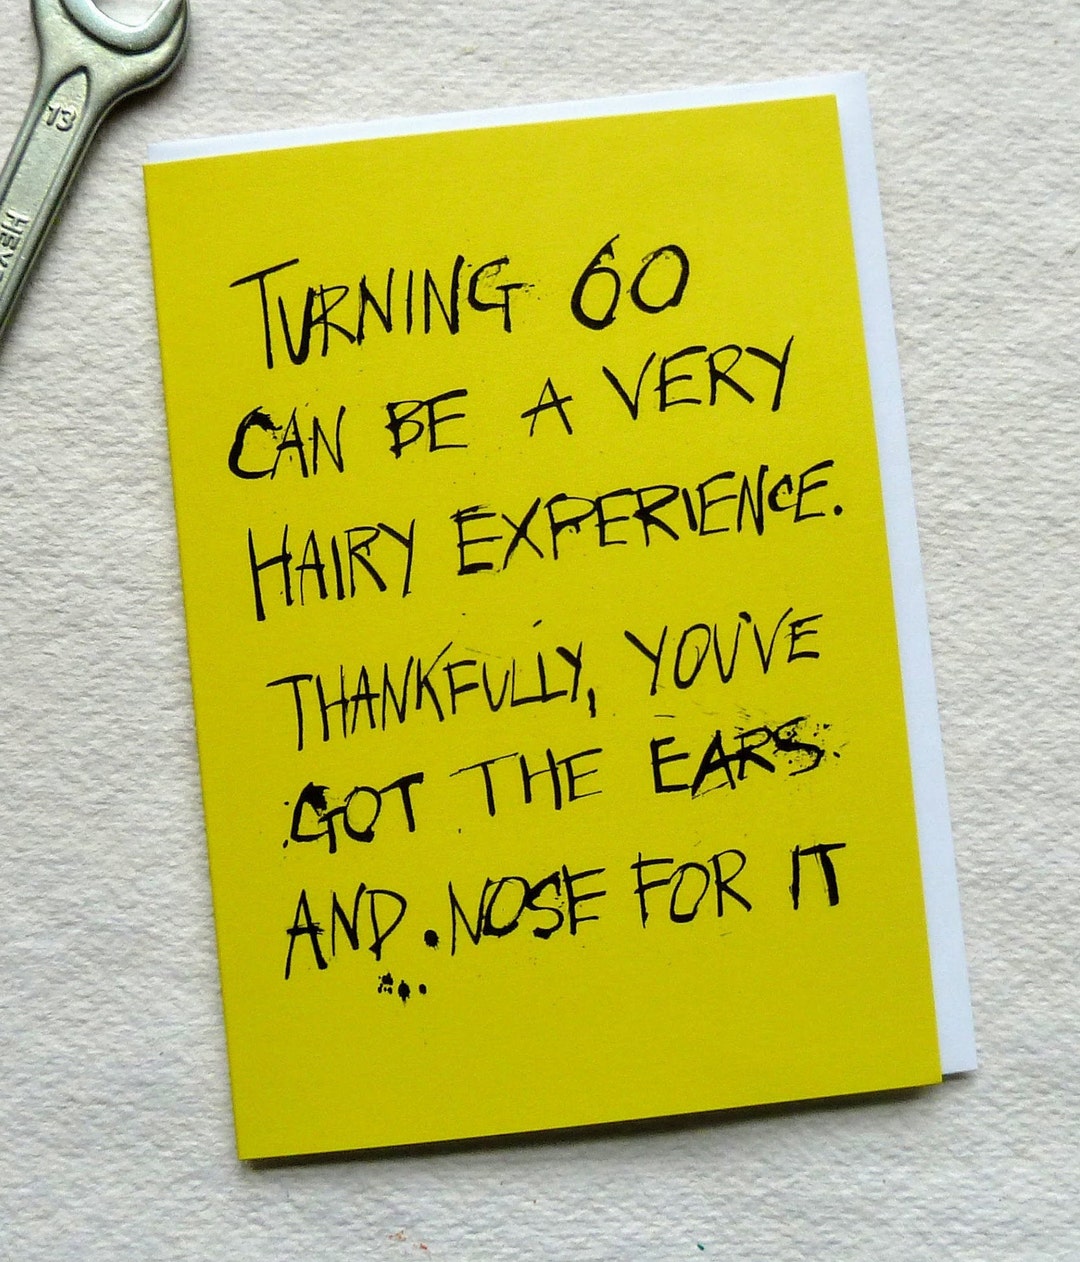 13
HEY
TURNING 60
CAN BE A VERY
HAIRY EXPERIENCE.
THANKFULLY, YOU'VE
GOT THE EARS
AND NOSE FOR IT